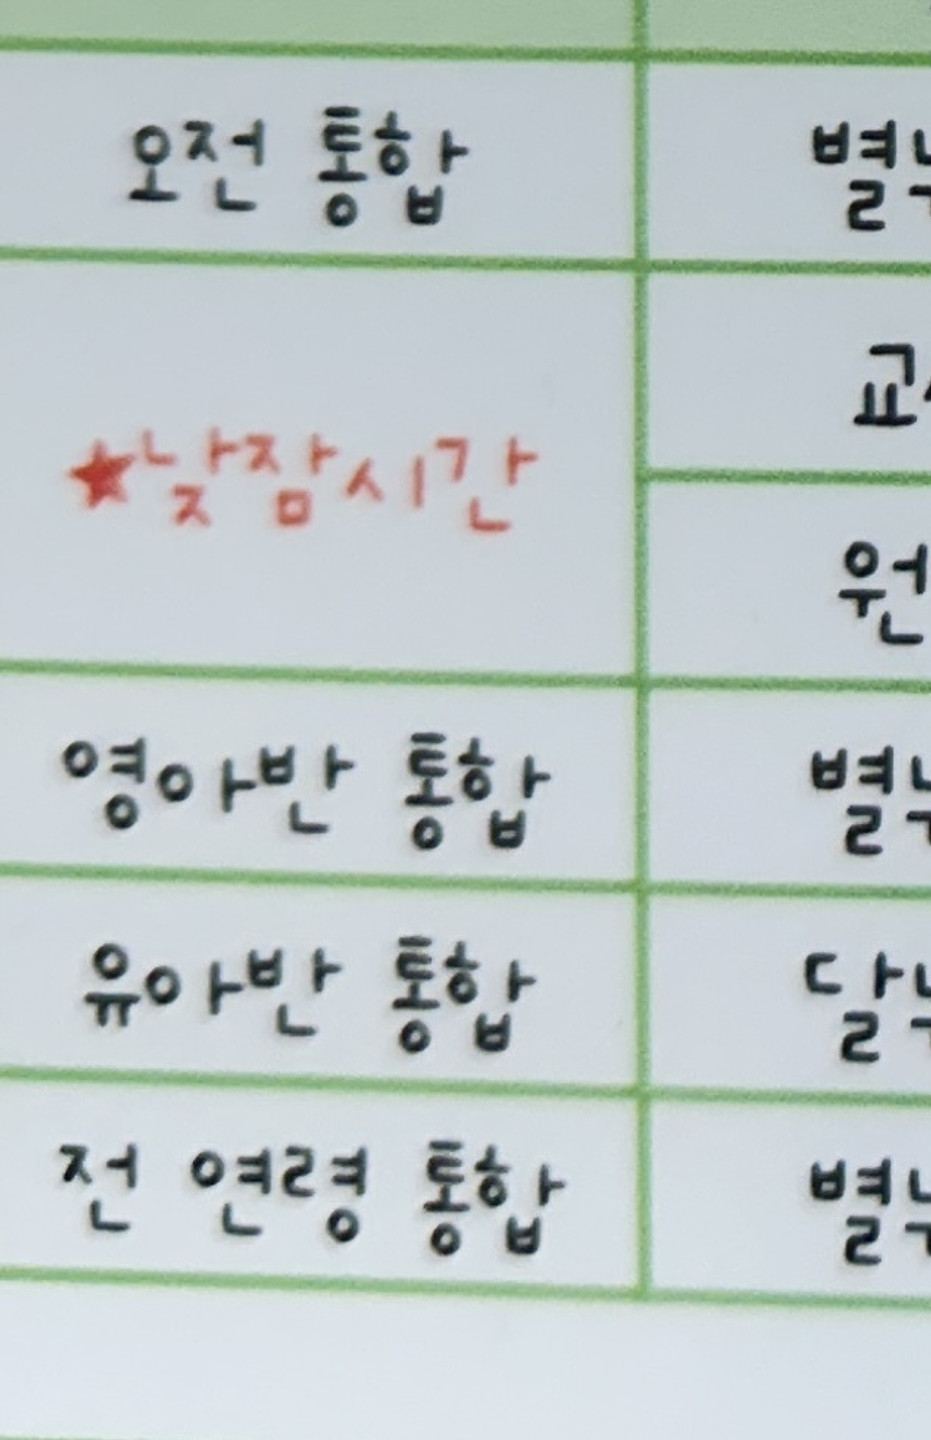 오전 통합
★낮잠시간
영아반 통합
유아반 통합
전 연령 통합
별
교
원
별
달
별